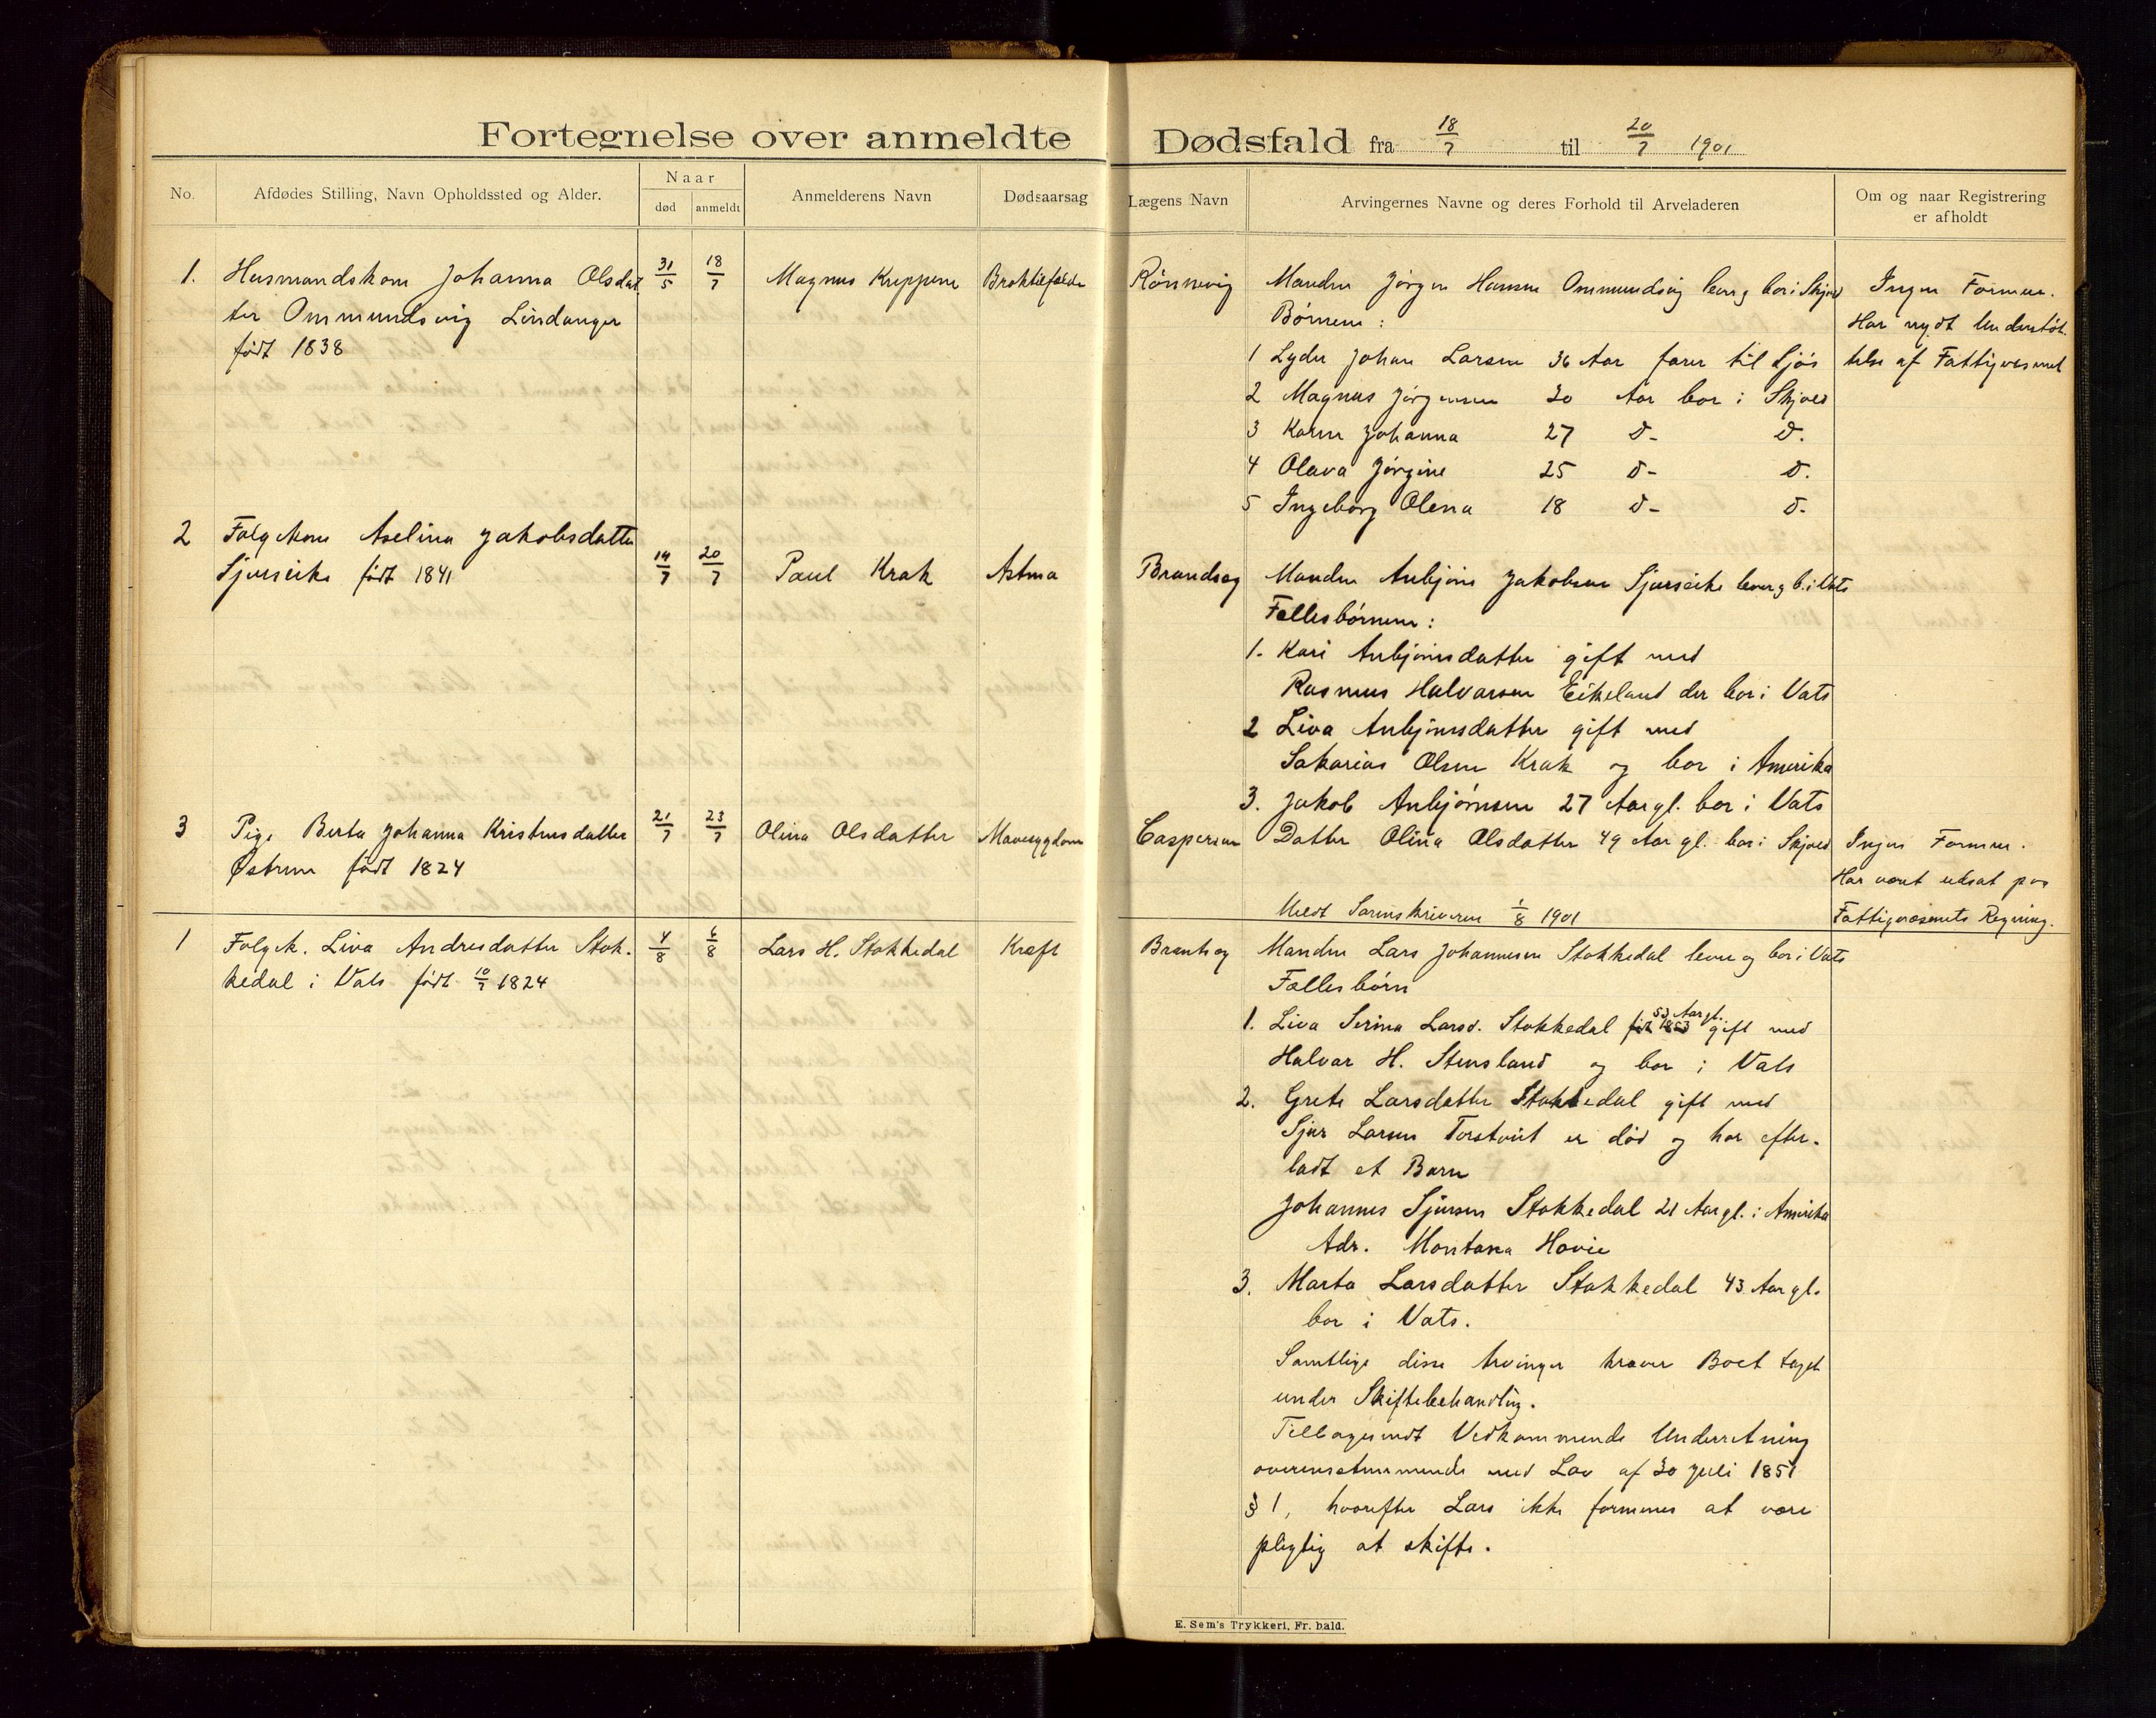 Fortegnelse over anmeldte Dødsfald fra 18/7 til 20/7 1901
No.
Afdødes Stilling, Navn Opholdssted og Alder.
Naar
død
anmeldt
Anmelderens Navn
Dødsaarsag
Lægens Navn
Arvingernes Navne og deres Forhold til Arveladeren
Om og naar Registrering
er afholdt
1. Husmandskone Johanna Olsdat 31/5 18/7 Magnus Kreppene
ter Ommundsvig Lindanger
født 1838
Rønnevig Manden Jørgen Hansen Ommundsvig lever og bor i Skjold
Børnene:
1 Lyder Johan Larsen 36 Aar farer til Sjøs
2 Magnus Jørgensen 30 Aar bor i Skjold
3 Karen Johanna 27 d- d.
4 Olava Jørgine 25 d- d.
5 Ingeborg Olena 18 d- d-
Ingen Formue.
Har nydt Understøt
telse af Fattigvesenet
2 Følgekone Aselina Jakobsdatter
Sjurseike født 1841 14/7 20/7 Paul Krak Astma
Brandsøg Manden Anbjørn Jakobsen Sjurseike lever og b. i Vats
Fellesbørnene:
1. Kari Anbjørnsdatter gift med
Rasmus Halvarsen Eikeland der bor i Vats
2 Liva Anbjørnsdatter gift med
Sakarias Olsen Krak og bor i Amerika
3. Jakob Anbjørnsen 27 Aar gl. bor i Vats
3 Pige Berta Johanna Kristensdatter 21/7 23/7 Olina Olsdatter Mavesygdom
Østrem født 1824
Caspersen Datter Olina Olsdatter 49 Aar gl. bor i Skjold
Meldt Sorenskriveren 1/8 1901
Ingen Formue.
Har vært udsat paa
Fattigvæsenets Regning.
1 Følgek. Liva Andresdatter Stok- 4/8 6/8 Lars H. Stokkedal Kræft
kedal i Vats født 10/7 1824
Brantsøg Manden Lars Johannesen Stokkedal lever og bor i Vats
Fællesbørn
1. Liva Serina Larsd. Stokkedal født 1853 53 Aar gl. gift med
Halvar H. Stensland og bor i Vats
2. Grete Larsdatter Stokkedal gift med
Sjur Larsen Torstveit er død og har efter-
ladt et Barn
Johannes Sjursen Stokkedal 21 Aar gl. i Amerika
Adr. Montana Havie
3. Marta Larsdatter Stokkedal 43 Aar gl.
bor i Vats.
Samtlige disse Arvinger kræver Boet taget
under Skiftebehandling.
Tilbagesendt Vedkommende Underretning
overensstemmende med Lov af 30 Juli 1851
§ 1, hvorefter Lars ikke formenes at være
pligtig at skifte.
E. Sem's Trykkeri, Fr.hald.